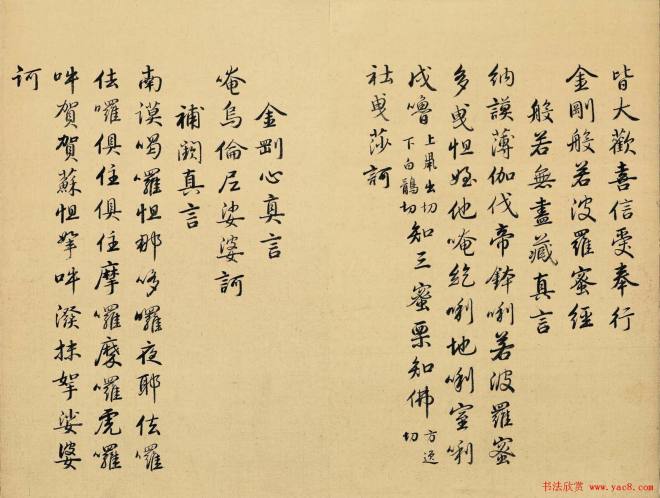 皆大歡喜信受奉行
金剛般若波羅蜜經
般若無盡藏真言
納謨薄伽伐帝鉢唎若波羅蜜
多曳怛姪他唵紇唎地唎室唎
戍嚕上出切下白鶻切知三蜜栗知佛方逸切
社曳莎訶
金剛心真言
唵烏倫尼娑婆訶
補闕真言
南謨喝囉怛那哆囉夜耶佉囉
佉囉俱住俱住摩囉摩囉虎囉
吽賀賀蘇怛拏吽潑抹拏娑婆
訶
书法欣赏 www.yac8.com